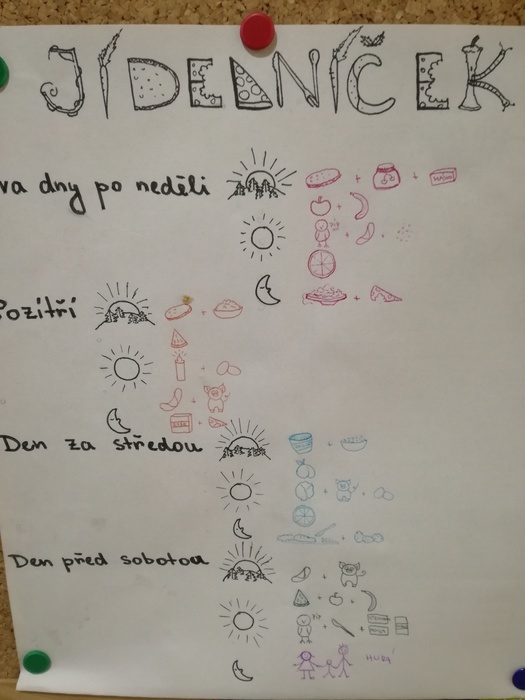 JÍDELNÍČEK
va dny po neděli
Pozítří
Den za středou
Den před sobotou
HURÁ